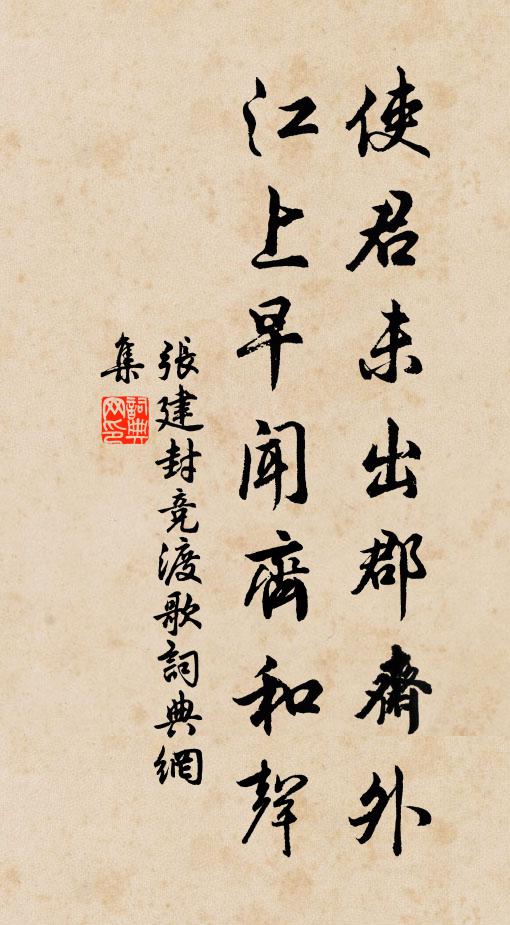 使君未出郡齋外
江上早聞齊和聲
張建封竞渡歌詞典網
集
詞典
网印